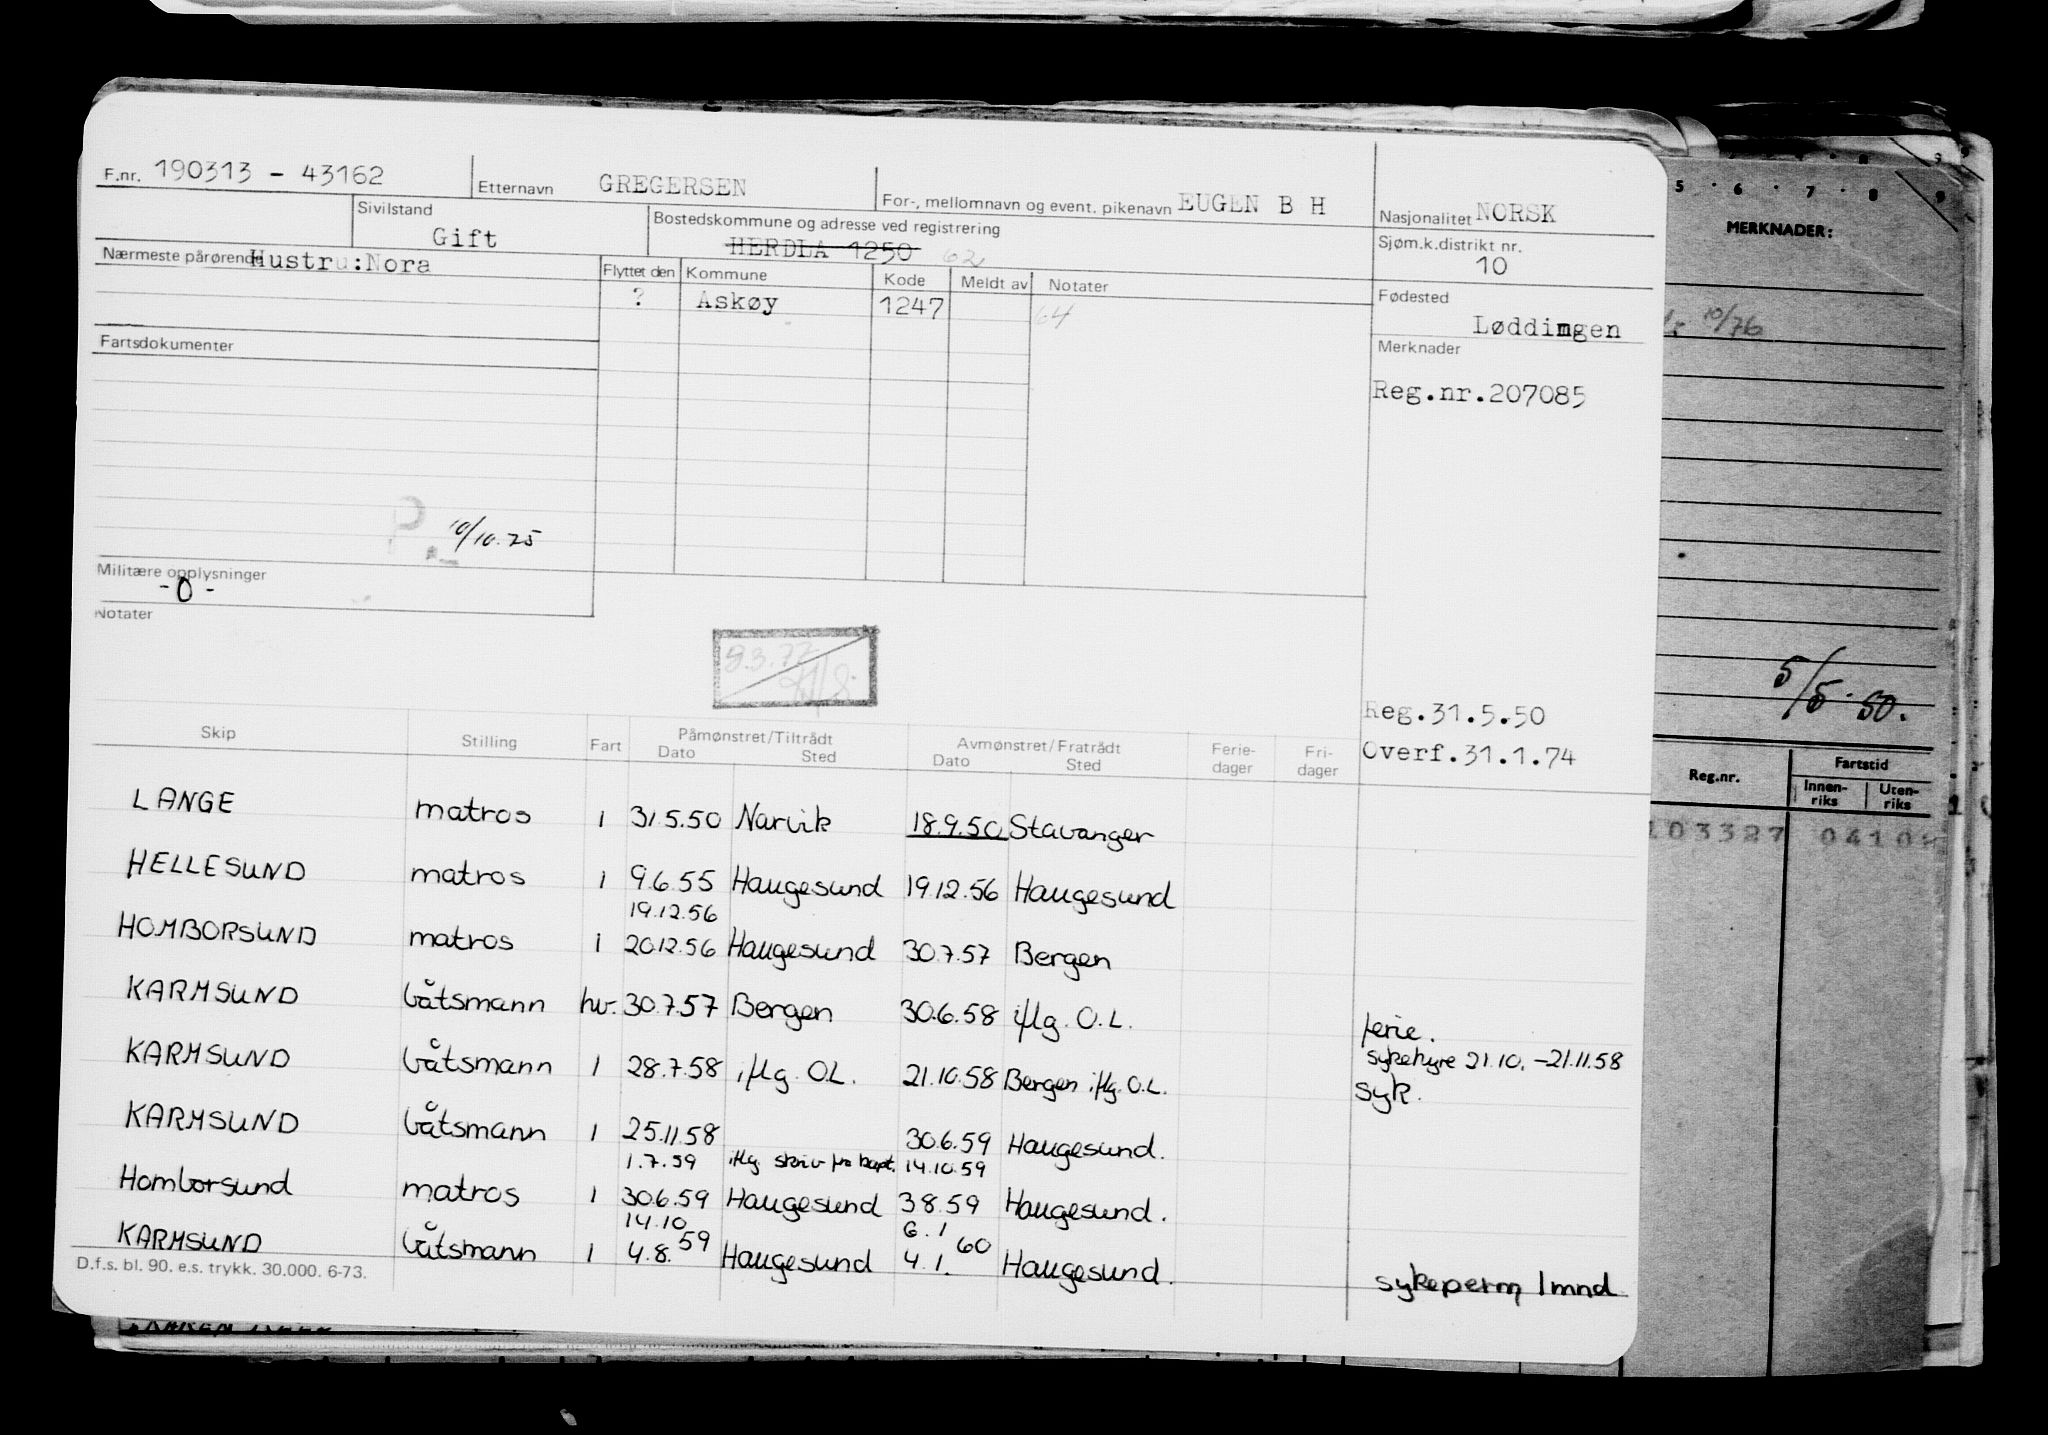 F.nr. 190313 - 43162
Etternavn GREGERSEN
For-, mellomnavn og event. pikenavn EUGEN B H
Nasjonalitet NORSK
Sivilstand
Gift
Bostedskommune og adresse ved registrering
HERDLA 1250 62
Sjøm.k.distrikt nr.
10
Nærmeste pårørende Hustru:Nora
Flyttet den Kommune Kode Meldt av Notater
? Askøy 1247 64
Fødested
Løddimgen
Fartsdokumenter
Merknader
Reg.nr.207085
P. 10/10.75
Militære opplysninger
-0-
Notater
9.3.77
Reg.31.5.50
Overf.31.1.74
Skip Stilling Fart Påmønstret/Tiltrådt Dato Sted Avmønstret/Fratrådt Dato Sted Ferie-dager Fri-dager
LANGE matros 1 31.5.50 Narvik 18.9.50 Stavanger
HELLESUND matros 1 9.6.55 Haugesund 19.12.56 Haugesund
19.12.56
HOMBORSUND matros i 20.12.56 Haugesund 30.7.57 Bergen
KARMSUND båtsmann hv. 30.7.57 Bergen 30.6.58 iflg. O.L. ferie.
sykehyre 21.10.-21.11.58
KARMSUND båtsmann 1 28.7.58 iflg. O.L. 21.10.58 Bergen iflg. O.L. syk.
KARMSUND båtsmann 1 25.11.58 30.6.59 Haugesund.
1.7.59 iflg skriv fra kapt. 14.10.59
Homborsund matros 1 30.6.59 Haugesund 3.8.59 Haugesund.
14.10 6.1
KARMSUND båtsmann 1 4.8.59 Haugesund 4.1.60 Haugesund. sykeperm 1 mnd
D.f.s. bl. 90. e.s. trykk. 30.000. 6-73.
5 6 7 8 9
MERKNADER:
10/76
5/5.50.
Reg.nr. Fartstid
Innen-riks Uten-riks
103327 0410